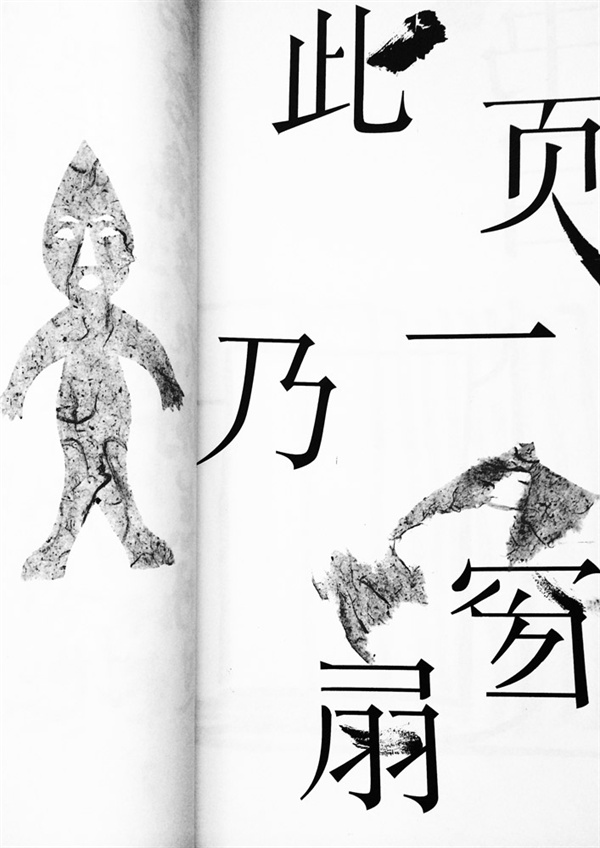 此页
乃一
扇窗